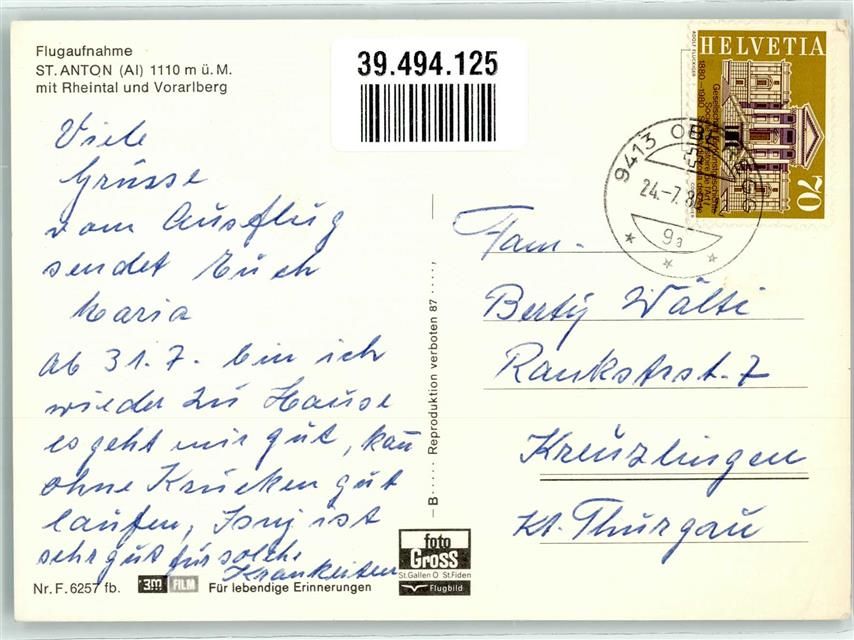 Flugaufnahme
ST. ANTON (AI) 1110 m ü. M.
mit Rheintal und Vorarlberg
39.494.125
Viele
Grüsse
vom Ausflug
sendet Euch
Maria
ab 31.7. bin ich
wieder zu Hause
es geht mir gut, kan
ohne Krücken gut
laufen,
ist
sehr gut für solche
Krankeiten
Nr. F. 6257 fb.
3M FILM
Für lebendige Erinnerungen
B Reproduktion verboten 87
foto
Gross
St.Gallen O St.Fiden
Flugbild
HELVETIA
ADOLF FLÜCKIGER
1880-1980
70
9413 OBEREGG
24.-7.8
12
9a
Fam.
Berty Wälti
Rankstrst. 7
Kreuzlingen
Kt. Thurgau